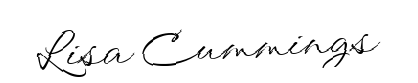 Lisa Cummings